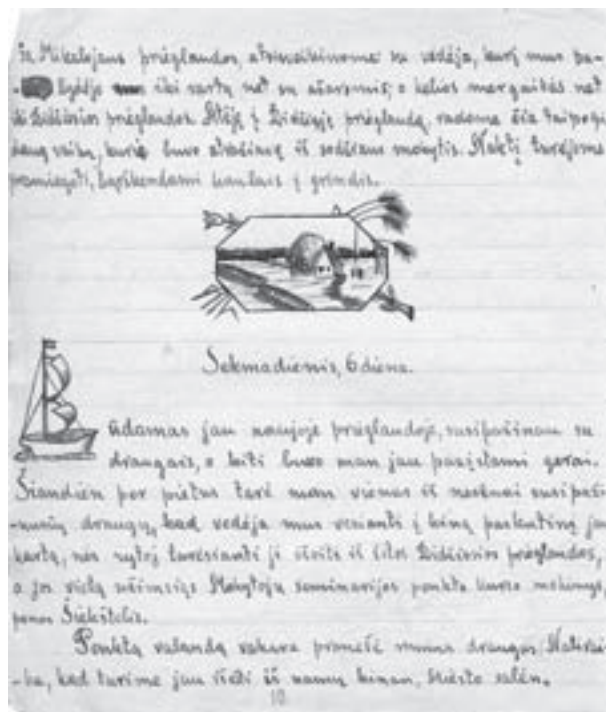 Mikalojaus prieglaudos, atsisveikinome su vedėja, kuri mus pa-
-lydėjo iki vartų net su ašaromis, o kelios mergaitės net
iki Didžiosios prieglaudos. Atėję į Didžiąją prieglaudą, radome čia taipogi
daug vaikų, kurie buvo atvažiavę iš mokytis. Naktį turėjome
pamiegoti, kaulais į grindis.
Sekmadienis, 6 diena.
ūdamas jau naujoje prieglaudoje, susipažinau su
draugais, o kiti buvo man jau pažįstami gerai.
Šiandien per pietus tarė man vienas iš neseniai susipaži-
-nusių draugų, kad vedėja mus vesianti į kiną paskutinį
kartą, nes rytoj turėsianti ji išeiti iš šitos Didžiosios prieglaudos,
o jos vietą užimsiąs Mokytojų seminarijos penkto kurso mokinys,
ponas
Penktą valandą vakare pranešė mums draugas
-ka, kad turime jau išeiti iš namų kinan, Miesto salėn.
10